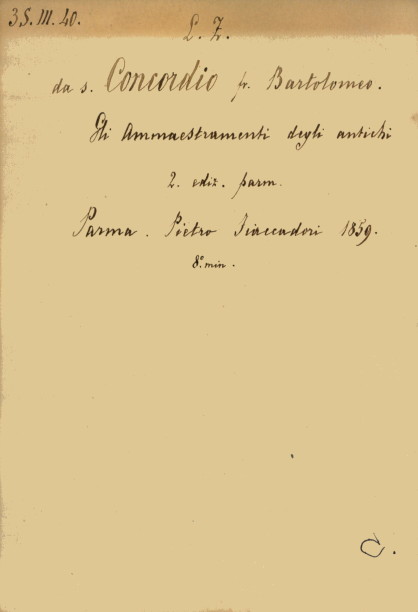 35.III.40.
L. Z.
da s. Concordio fr. Bartolomeo.
Gli Ammaestramenti degli antichi
2. ediz. parm.
Parma. Pietro Fiaccadori 1859.
8.° min.
C.